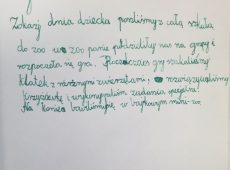 Zokazji dnia dziecka poszliśmy z całą szkołą
do zoo w zoo panie podzieliły nas na grupy i
rozpoczęła się gra. Podczas gry szukaliśmy
klatek z różnymi zwierzętami, rozwiązywaliśmy
krzyżówkę i wykonywaliśmy zadania specjalne!
Na koniec bawiliśmy się w bajkowym mini-zoo